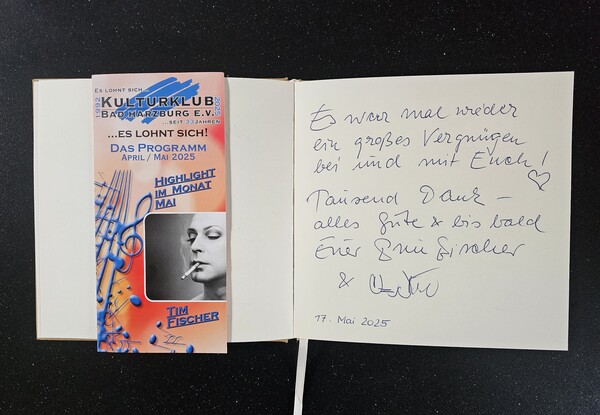 Es lohnt sich...
Kulturklub
Bad Harzburg e.V.
1992
2025
...seit 33 Jahren
...es lohnt sich!
Das Programm
April / Mai 2025
Highlight
im Monat
Mai
Tim
Fischer
Es war mal wieder
ein großes Vergnügen
bei und mit Euch!
Tausend Dank –
alles Gute & bis bald
Euer Tim Fischer
&
17. Mai 2025